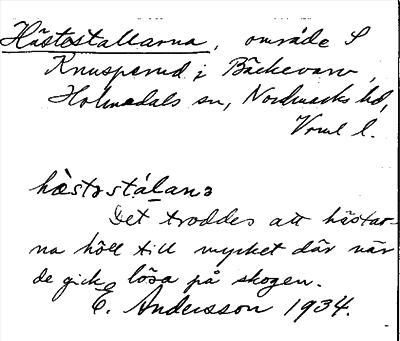 Hästostallarna, område S
Knusperud i Bäckevarv,
Holmedals sn, Nordmarks hd,
Vrml l.
hästostálana
Det troddes att hästar-
na höll till mycket där när
de gick lösa på skogen.
E. Andersson 1934.